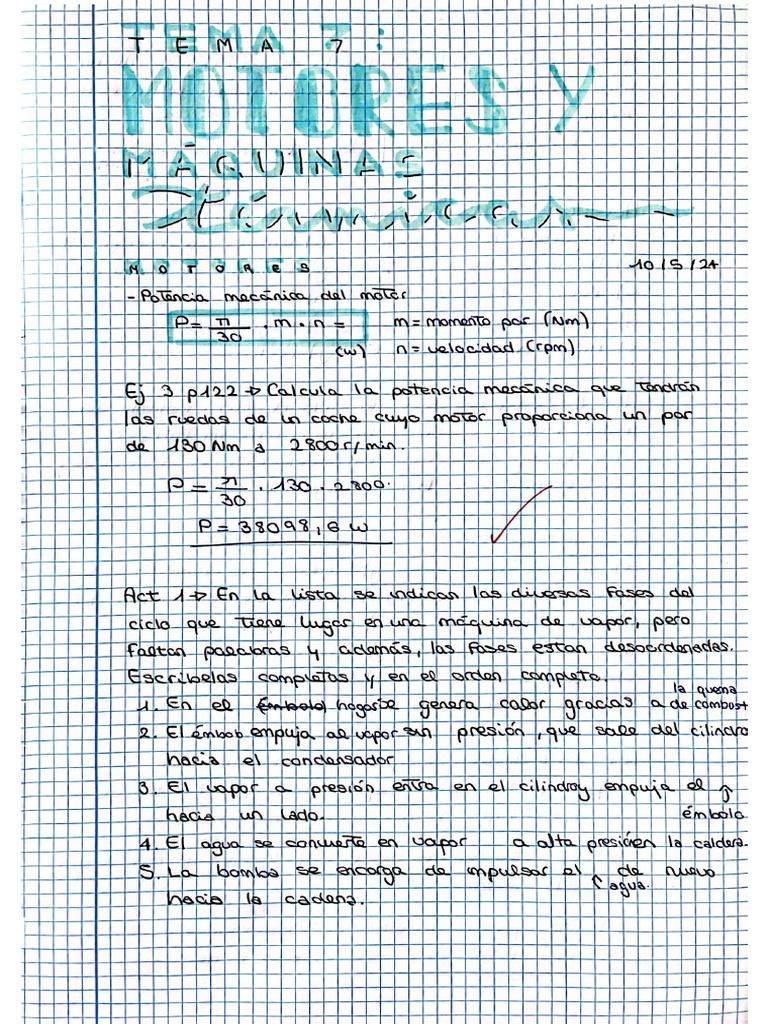 TEMA 7:
MOTORES Y
MÁQUINAS
térmicas
MOTORES 10/5/24
- Potencia mecánica del motor
P = π/30 · m · n = m = momento par (Nm)
(w) n = velocidad (rpm)
Ej 3 p122 → Calcula la potencia mecánica que tendrán
las ruedas de un coche cuyo motor proporciona un par
de 130 Nm a 2800 r/min.
P = π/30 · 130 · 2800.
P = 38098,6 w
Act 1 → En la lista se indican las diversas fases del
ciclo que tiene lugar en una máquina de vapor, pero
faltan palabras y además, las fases estan desordenadas.
Escríbelas completas y en el orden completo.
la quema
1. En el émbolo hogar se genera calor gracias a de combust
2. El émbob empuja al vapor sin presión, que sale del cilindro
hacia el condensador
3. El vapor a presión entra en el cilindro y empuja el ↑
hacia un lado. émbolo
4. El agua se convierte en vapor a alta presión en la caldera.
5. La bomba se encarga de impulsar el de nuevo
agua.
hacia la cadera.